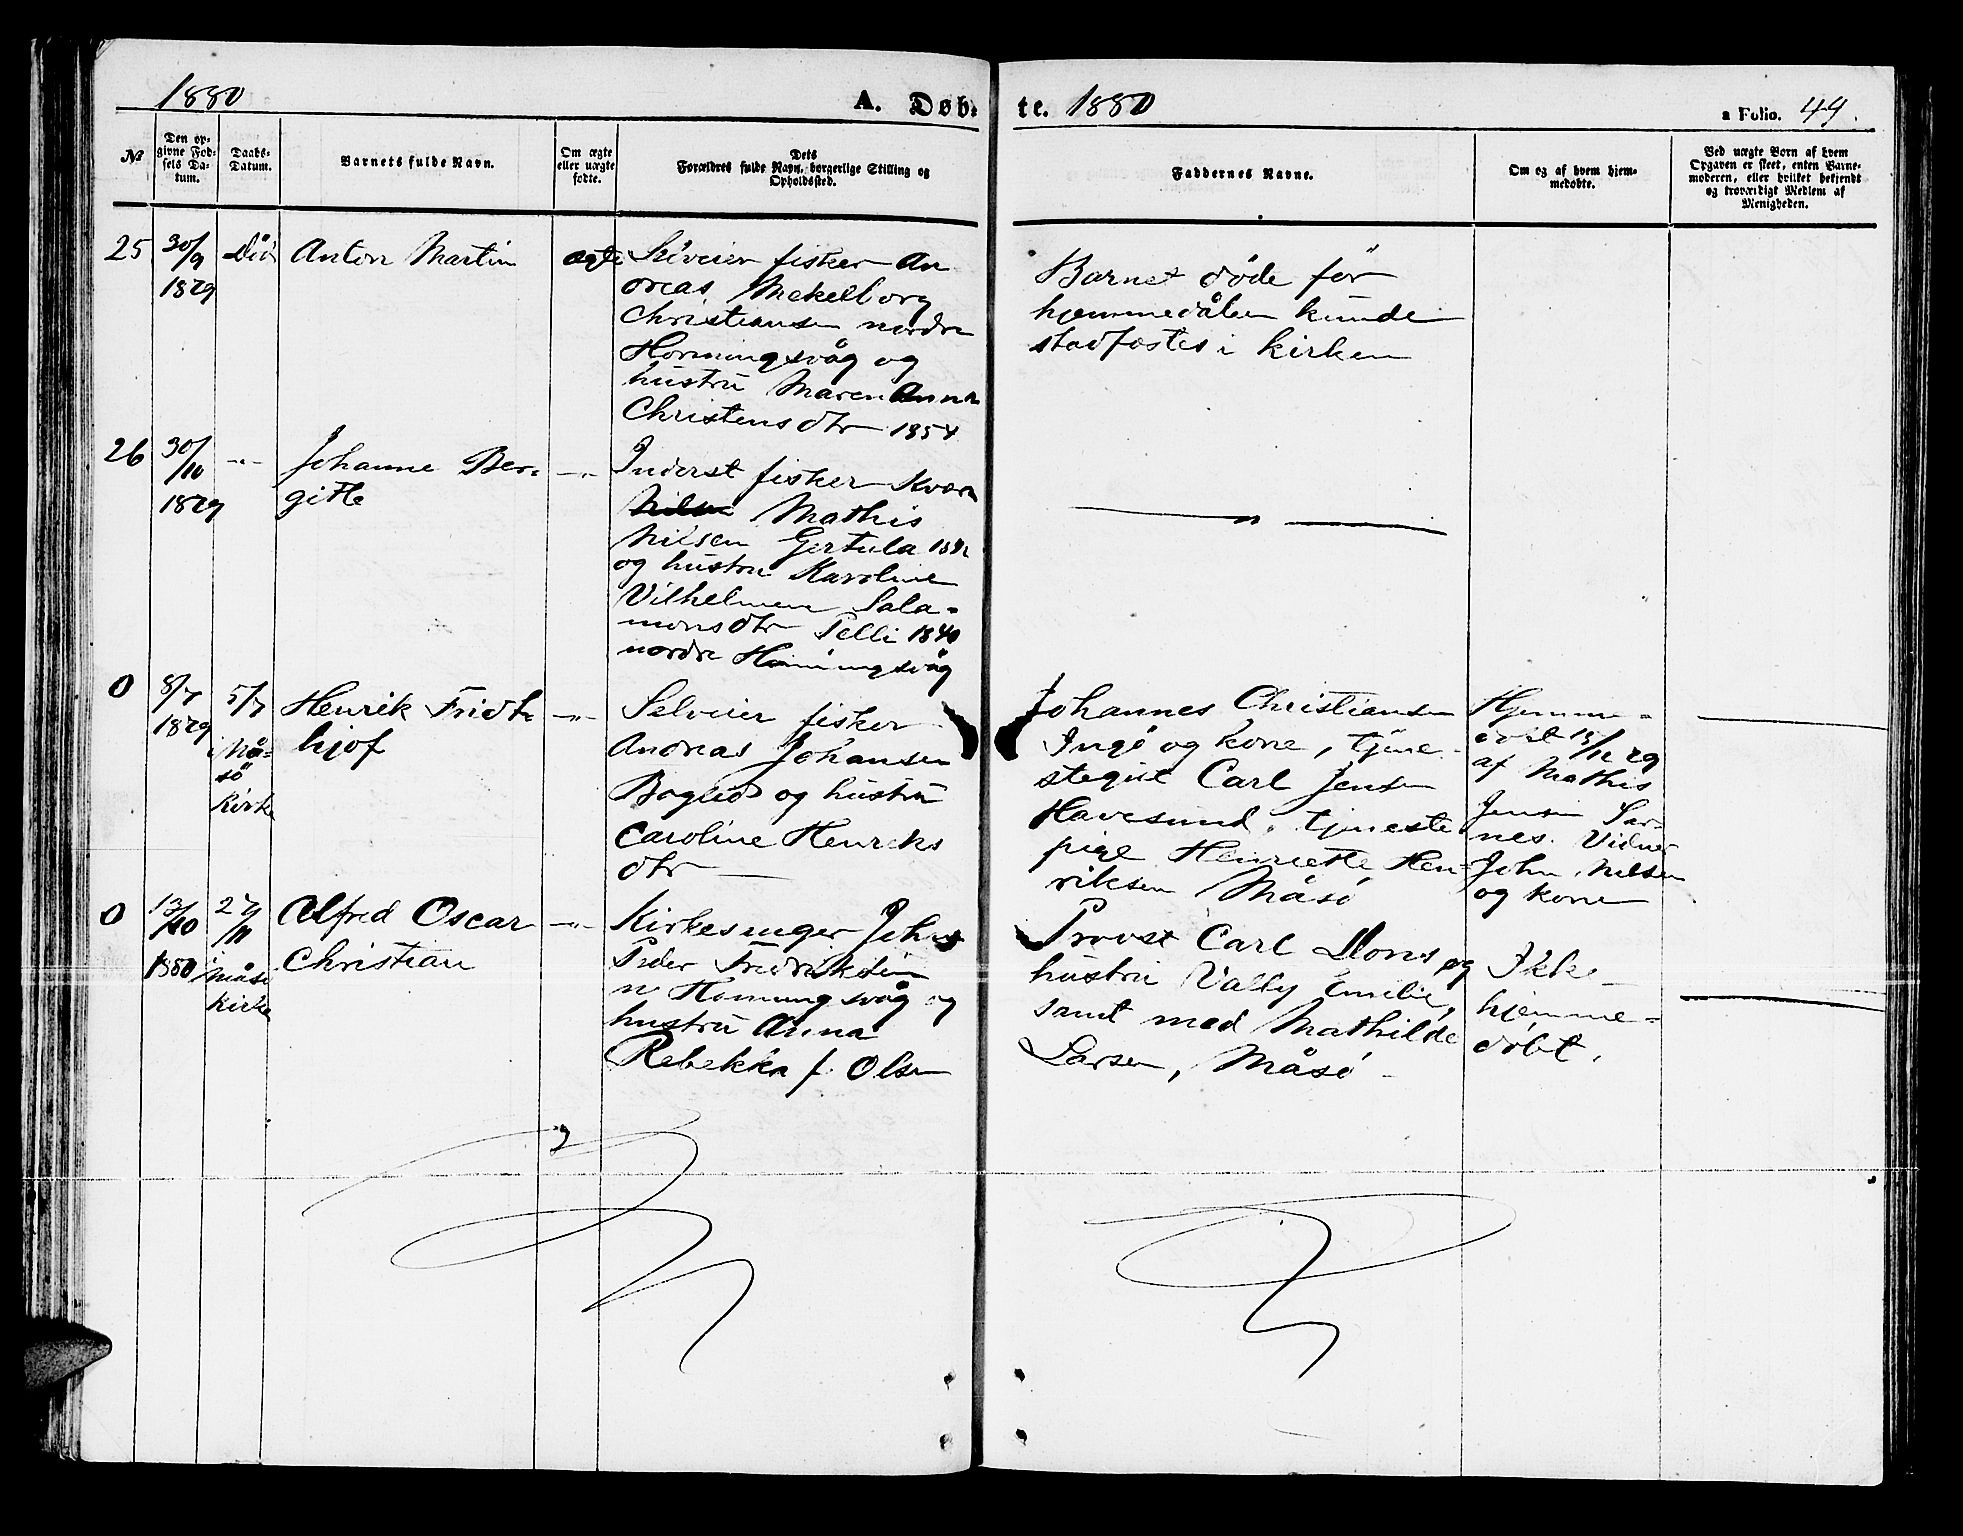 1880
A. Døb-
te. 1880
a Folio. 44.
№
Den op-
givne Fød-
sels Da-
tum.
Daabs-
Datum.
Barnets fulde Navn.
Om ægte
eller uægte
fødte.
Dets
Forældres fulde Navn, borgerlige Stilling og
Opholdssted.
Faddernes Navne.
Om og af hvem hjem-
medøbte.
Ved uægte Børn af hvem
Opgaven er skeet, enten Barne-
moderen, eller hvilket bekjendt
og troværdigt Medlem af
Menigheden.
25
30/9
1879
Död
Anton Martin
ægte
fisker An
dreas Mekelborg
Christiansen nordre
Honningsvåg og
hustru Maren Anna
Christensdtr 1854
Barnet döde för
hjemmedåben kunde
stadfæstes i kirken
26
30/10
1879
-"-
Johanne Ber-
gitte
-"-
Inderst fisker Kvæn
Mathis
Nilsen Gertula
og hustru Karoline
Vilhelmine Sala-
monsdtr Pelli 1840
nordre Honningsvåg
-"-
0
8/7
1879
5/7
Må-
sö
Kirke
Henrik Fridt
hjof
-"-
Selveier fisker
Andreas Johansen
og hustru
Caroline Henriks
dtr
Johannes Christiansen
Ingö og kone, tjene-
stegut Carl Jensen
Havesund, tjeneste
pige Henriette Hen-
riksen Måsö
Hjemme-
döbt 15/12 79
af Mathis
Jensen Sar-
nes. Vidner
John Nilsen
og kone
0
13/10
1880
27/11
i Måsö
Kirke
Alfred Oscar
Christian
-"-
Kirkesanger Johs
Peder Fredriksen
n Honningsvåg og
hustru Anna
Rebekka f. Olsen
Provst Carl Dons og
hustru Vally Emilie,
samt mad Mathilde
Larsen, Måsö
Ikke
hjemme-
döbt.